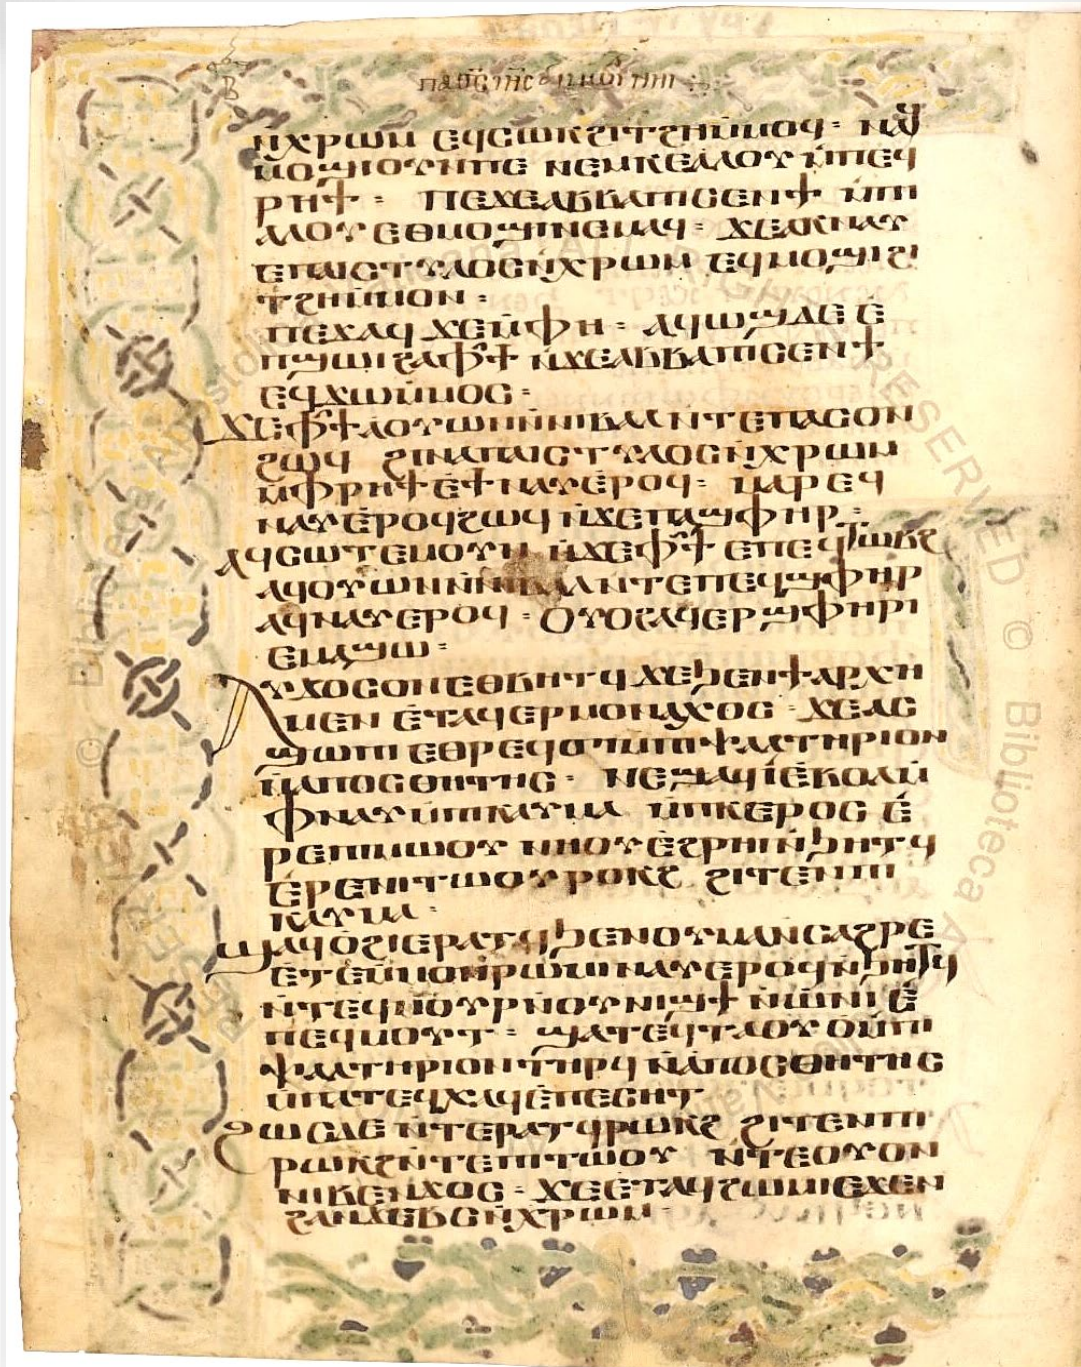 ⲛ̀ⲭⲣⲱⲙ ⲉϥⲥⲱⲕ ϩⲓⲧϩⲏ ⲙ̀ⲙⲟϥ ⲛⲁϥ
ⲙⲟϣⲓ ⲟⲩⲛ ⲡⲉ ⲛⲉⲙ ⲕⲉⲗⲗⲟⲩ ⲙ̀ⲡⲉϥ
ⲣⲏϯ ⲡⲉϫⲉ ⲁⲃⲃⲁ ⲡⲓⲥⲉⲛϯ ⲙ̀ⲡⲓ
ⲗⲗⲟⲩ ⲉⲑⲙⲟϣⲓ ⲛⲉⲙⲁϥ ϫⲉ ⲁⲕⲛⲁⲩ
ⲉⲡⲁⲓⲥⲧⲩⲗⲟⲥ ⲛ̀ⲭⲣⲱⲙ ⲉϥⲙⲟϣⲓ ϩⲓ
ⲧϩⲏ ⲙ̀ⲙⲟⲛ
ⲡⲉϫⲁϥ ϫⲉ ⲙ̀ⲫⲏ ⲁϥⲱϣ ⲇⲉ ⲉ̀
ⲡϣⲱⲓ ϩⲁ ⲫϯ ⲛ̀ϫⲉ ⲁⲃⲃⲁ ⲡⲓⲥⲉⲛϯ
ⲉϥϫⲱ ⲙ̀ⲙⲟⲥ
ϫⲉ ⲫϯ ⲁⲟⲩⲱⲛ ⲛ̀ⲛⲓⲃⲁⲗ ⲛⲧⲉ ⲡⲁⲥⲟⲛ
ϩⲱϥ ϩⲓⲛⲁ ⲡⲁⲓⲥⲧⲩⲗⲟⲥ ⲛ̀ⲭⲣⲱⲙ
ⲙ̀ⲫⲣⲏϯ ⲉ̀ϯⲛⲁⲩ ⲉ̀ⲣⲟϥ ⲙⲁⲣⲉϥ
ⲛⲁⲩ ⲉ̀ⲣⲟϥ ϩⲱϥ ⲛ̀ϫⲉ ⲡⲁϣⲫⲏⲣ
ⲁϥⲥⲱⲧⲉⲙ ⲟⲩⲛ ⲛ̀ϫⲉ ⲫϯ ⲉⲡⲉϥⲧⲱⲃϩ
ⲁϥⲟⲩⲱⲛ ⲛ̀ⲛⲓⲃⲁⲗ ⲛⲧⲉ ⲡⲉϥϣⲫⲏⲣ
ⲁϥⲛⲁⲩ ⲉⲣⲟϥ ⲟⲩⲟϩ ⲁϥⲉⲣϣⲫⲏⲣⲓ
ⲉⲙⲁϣⲱ
ⲁⲩϫⲟⲥ ⲟⲛ ⲉⲑⲃⲏⲧϥ ϫⲉ ϧⲉⲛ ϯⲁⲣⲭⲏ
ⲙⲉⲛ ⲉ̀ⲧⲁϥⲉⲣⲙⲟⲛⲁⲭⲟⲥ ϫⲉ ⲁⲥ
ϣⲱⲡⲓ ⲉⲑⲣⲉϥϭⲓ ⲙ̀ⲡⲓⲯⲁⲗⲧⲏⲣⲓⲟⲛ
ⲛ̀ⲁⲡⲟⲥⲑⲏⲧⲏⲥ ⲛⲉ ϣⲁϥⲓ̀ ⲉ̀ⲃⲟⲗ ⲙ̀
ⲫⲛⲁⲩ ⲙ̀ⲡⲓⲕⲁⲩⲙⲁ ⲙ̀ⲡⲕⲉⲣⲟⲥ ⲉ̀
ⲣⲉ ⲡⲓⲙⲱⲟⲩ ⲛⲏⲟⲩ ⲉ̀ϩⲣⲏⲓ ⲛ̀ϧⲏⲧϥ
ⲉ̀ⲣⲉ ⲛⲓⲧⲱⲟⲩ ⲣⲟⲕϩ ϩⲓⲧⲉⲛ ⲡⲓ
ⲕⲁⲩⲙⲁ
ϣⲁϥⲟ̀ϩⲓ ⲉⲣⲁⲧϥ ϧⲉⲛ ⲟⲩⲙⲁ ⲛⲥⲁϩⲣⲉ
ⲉ̀ⲧⲉ ⲙ̀ⲙⲟⲛ ⲣⲱⲙⲓ ⲛⲁⲩ ⲉⲣⲟϥ ⲛ̀ϧⲏⲧϥ
ⲛ̀ⲧⲉϥⲙⲟⲩⲣ ⲛ̀ⲟⲩⲛⲓϣϯ ⲛ̀ⲱⲛⲓ ⲉ̀
ⲡⲉϥⲙⲟⲩⲧ ϣⲁⲧⲉϥⲧⲁⲟⲩⲟ̀ ⲙ̀ⲡⲓ
ⲯⲁⲗⲧⲏⲣⲓⲟⲛ ⲧⲏⲣϥ ⲛ̀ⲁⲡⲟⲥⲑⲏⲧⲏⲥ
ⲙ̀ⲡⲁⲧⲉϥⲭⲁϥ ⲉ̀ⲡⲉⲥⲏⲧ
ϩⲱⲥⲇⲉ ⲛ̀ⲧⲉⲣⲁⲧϥ ⲣⲱⲕϩ ϩⲓⲧⲉⲛ ⲡⲓ
ⲣⲱⲕϩ ⲛ̀ⲧⲉ ⲡⲓⲧⲱⲟⲩ ⲛ̀ⲧⲉ ⲟⲩⲟⲛ
ⲛⲓⲃⲉⲛ ϫⲟⲥ ϫⲉ ⲉ̀ⲧⲁϥϩⲱⲙⲓ ⲉϫⲉⲛ
ϩⲁⲛϫⲉⲃⲥ ⲛ̀ⲭⲣⲱⲙ